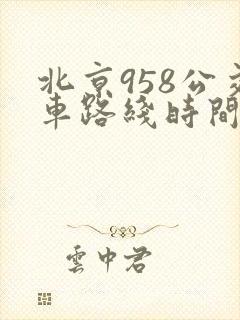 北京958公交
車路綫時間
雲中君